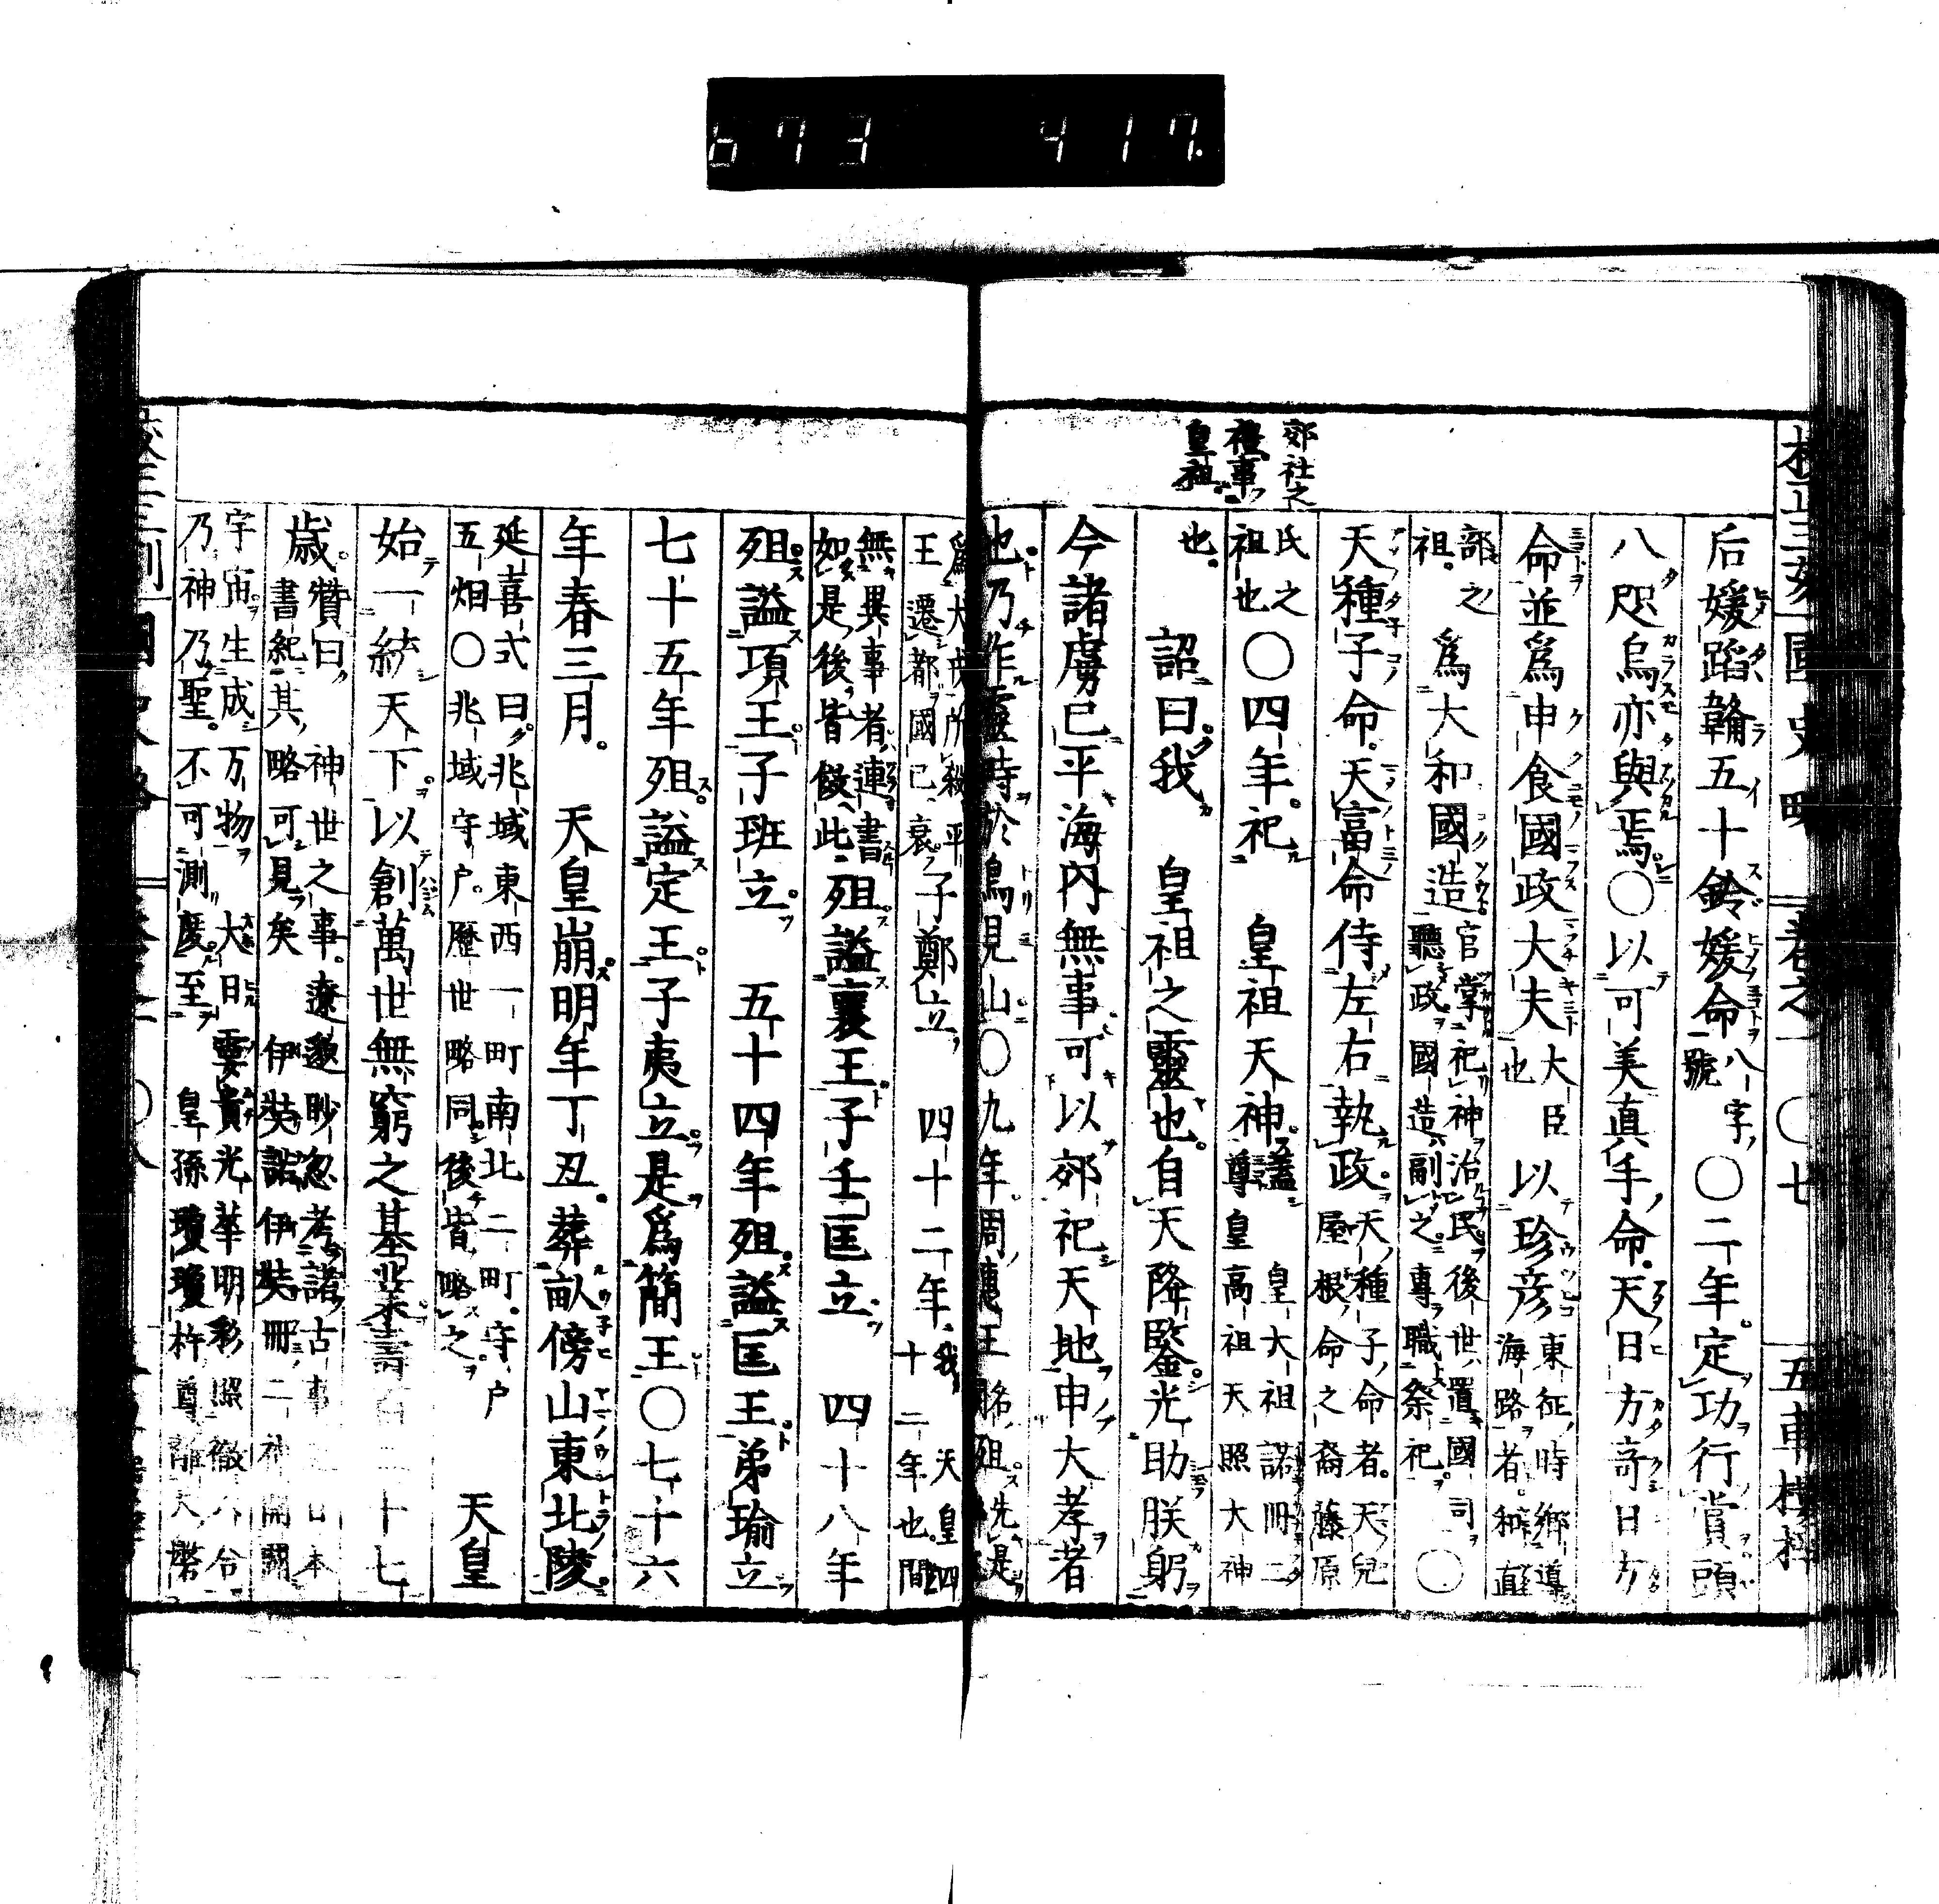 673 417.
國史略 卷之一 〇七 五車樓梓
郊社之
禮事
皇祖
后媛蹈韛五十鈴媛命八字號〇二年定功行賞頭
八咫烏亦與焉〇以可美真手命天日方奇日方
命並爲申食國政大夫大臣也以珍彦東征時鄉導海路者稱直
部之祖爲大和國造官掌祀神治民後世置國司聽政國造副之專職祭祀〇
天種子命天富命侍左右執政天種子命者天兒屋根命之裔藤原
氏之祖也〇四年祀 皇祖天神蓋尊 皇大祖諾冊二皇高祖天照大神
也 詔曰我 皇祖之靈也自天降鑒光助朕躬
今諸虜已平海內無事可以郊祀天地申大孝者
也乃作靈畤於鳥見山〇九年周 王 殂先是
王遷都國已衰 平子鄭立 四十二年我 天皇四十二年也間
無異事者連書如是後皆倣此殂謚襄王子壬匡立 四十八年
殂謚項王子班立 五十四年殂謚匡王弟瑜立
七十五年殂謚定王子夷立是爲簡王〇七十六
年春三月 天皇崩明年丁丑葬畝傍山東北陵
延喜式曰兆域東西一町南北二町守戶五烟〇兆域守戶歷世略同後皆略之 天皇
始一統天下以創萬世無窮之基業壽 二十七
歲贊曰神世之事遼邈眇忽考諸古事 日本書紀其略可見矣 伊奘諾伊奘冊二神開闢
宇宙生成万物大日孁貴光華明彩照徹六合乃神乃聖不可測度至 皇孫瓊瓊杵尊離天磐